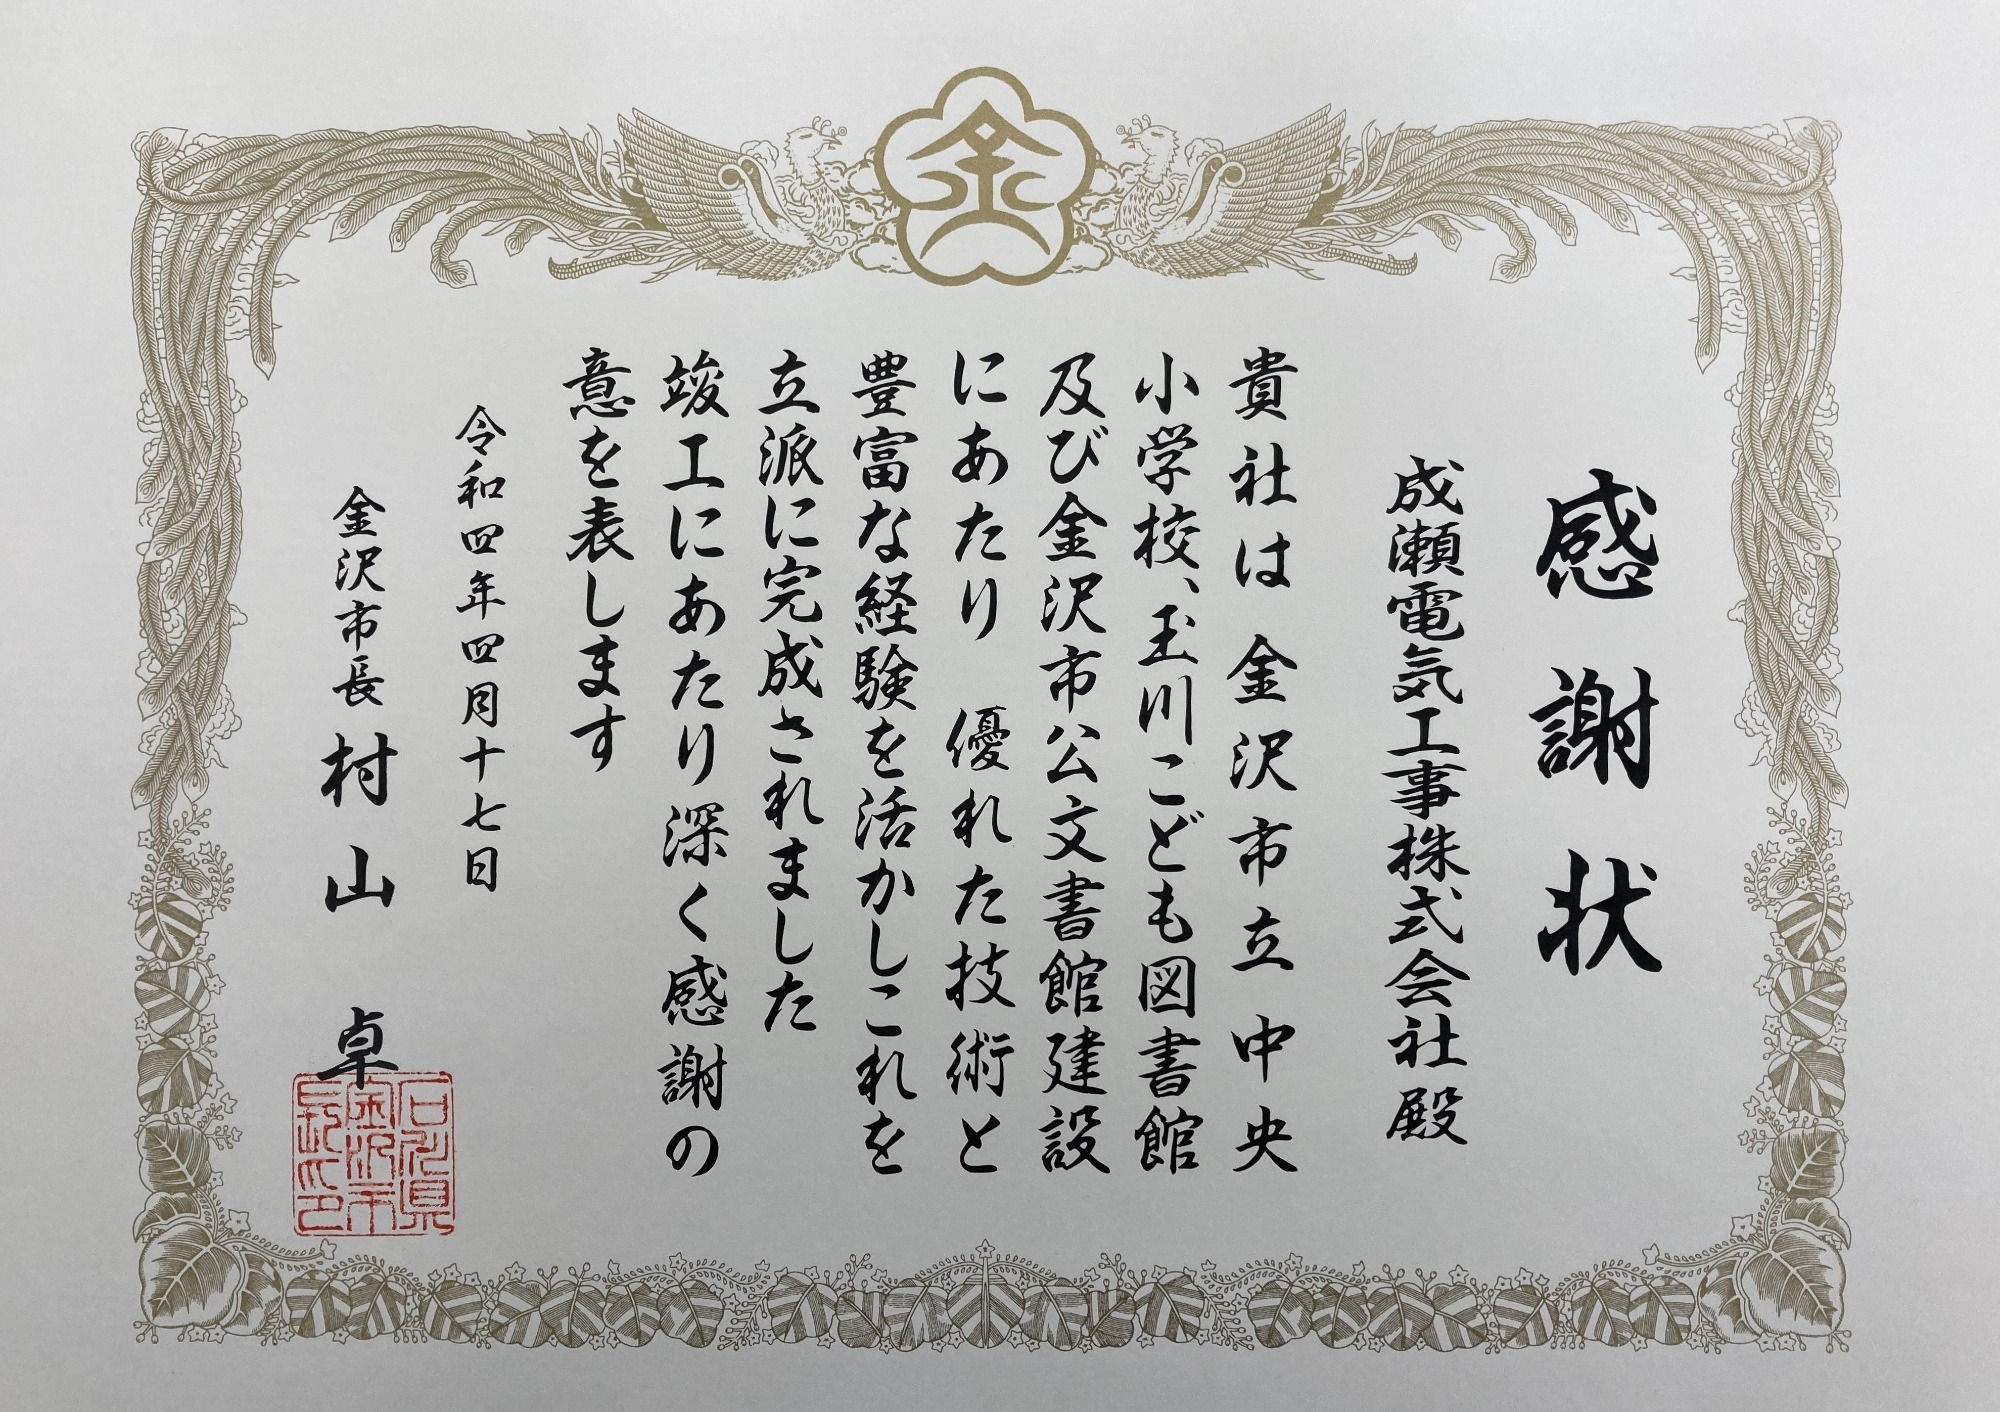 感謝状
成瀬電気工事株式会社殿
貴社は金沢市立中央
小学校、玉川こども図書館
及び金沢市公文書館建設
にあたり 優れた技術と
豊富な経験を活かしこれを
立派に完成されました
竣工にあたり深く感謝の
意を表します
令和四年四月十七日
金沢市長 村山 卓
石川県
金沢市
長印